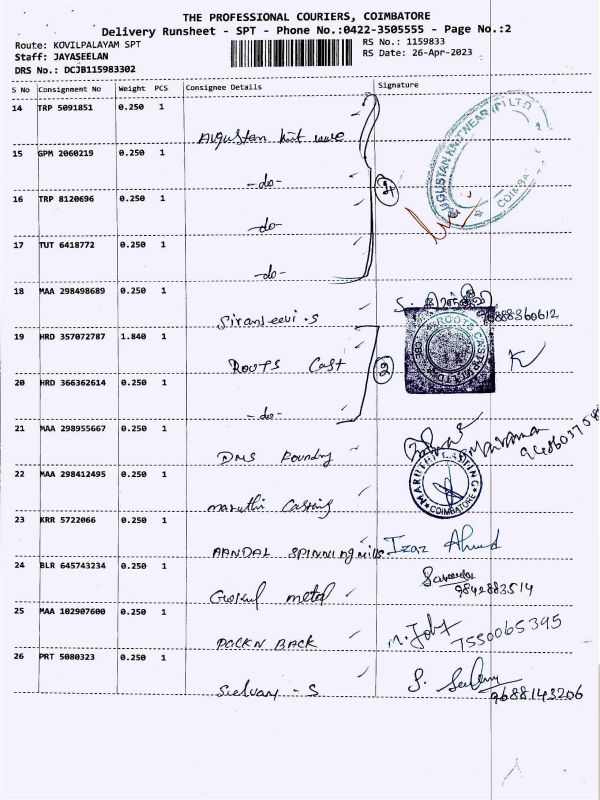 THE PROFESSIONAL COURIERS, COIMBATORE
Delivery Runsheet - SPT - Phone No.:0422-3505555 - Page No.:2
Route: KOVILPALAYAM SPT RS No.: 1159833
Staff: JAYASEELAN RS Date: 26-Apr-2023
DRS No.: DCJB115983302
S No Consignment No Weight PCS Consignee Details Signature
14 TRP 5091851 0.250 1
Augustan knit ware
AUGUSTAN KNITWEAR (P) LTD
15 GPM 2060219 0.250 1
-do-
16 TRP 8120696 0.250 1
-do-
17 TUT 6418772 0.250 1
-do-
18 MAA 298498689 0.250 1
Siranjeevi .S
9888360612
19 HRD 357072787 1.840 1
ROOTS Cast
2
20 HRD 366362614 0.250 1
-do-
21 MAA 298955667 0.250 1
DMS Foundry
22 MAA 298412495 0.250 1
maruthi Casting
COIMBATORE
23 KRR 5722066 0.250 1
AANDAL SPINNING mills Izaz Ahmed
24 BLR 645743234 0.250 1
Gokul metal
9842883514
25 MAA 102907600 0.250 1
PACKN BACK
7550065395
26 PRT 5080323 0.250 1
Selvary - S
9688143206